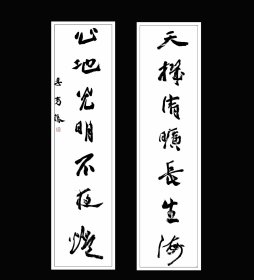 天機清曠長生海
心地光明不夜燈